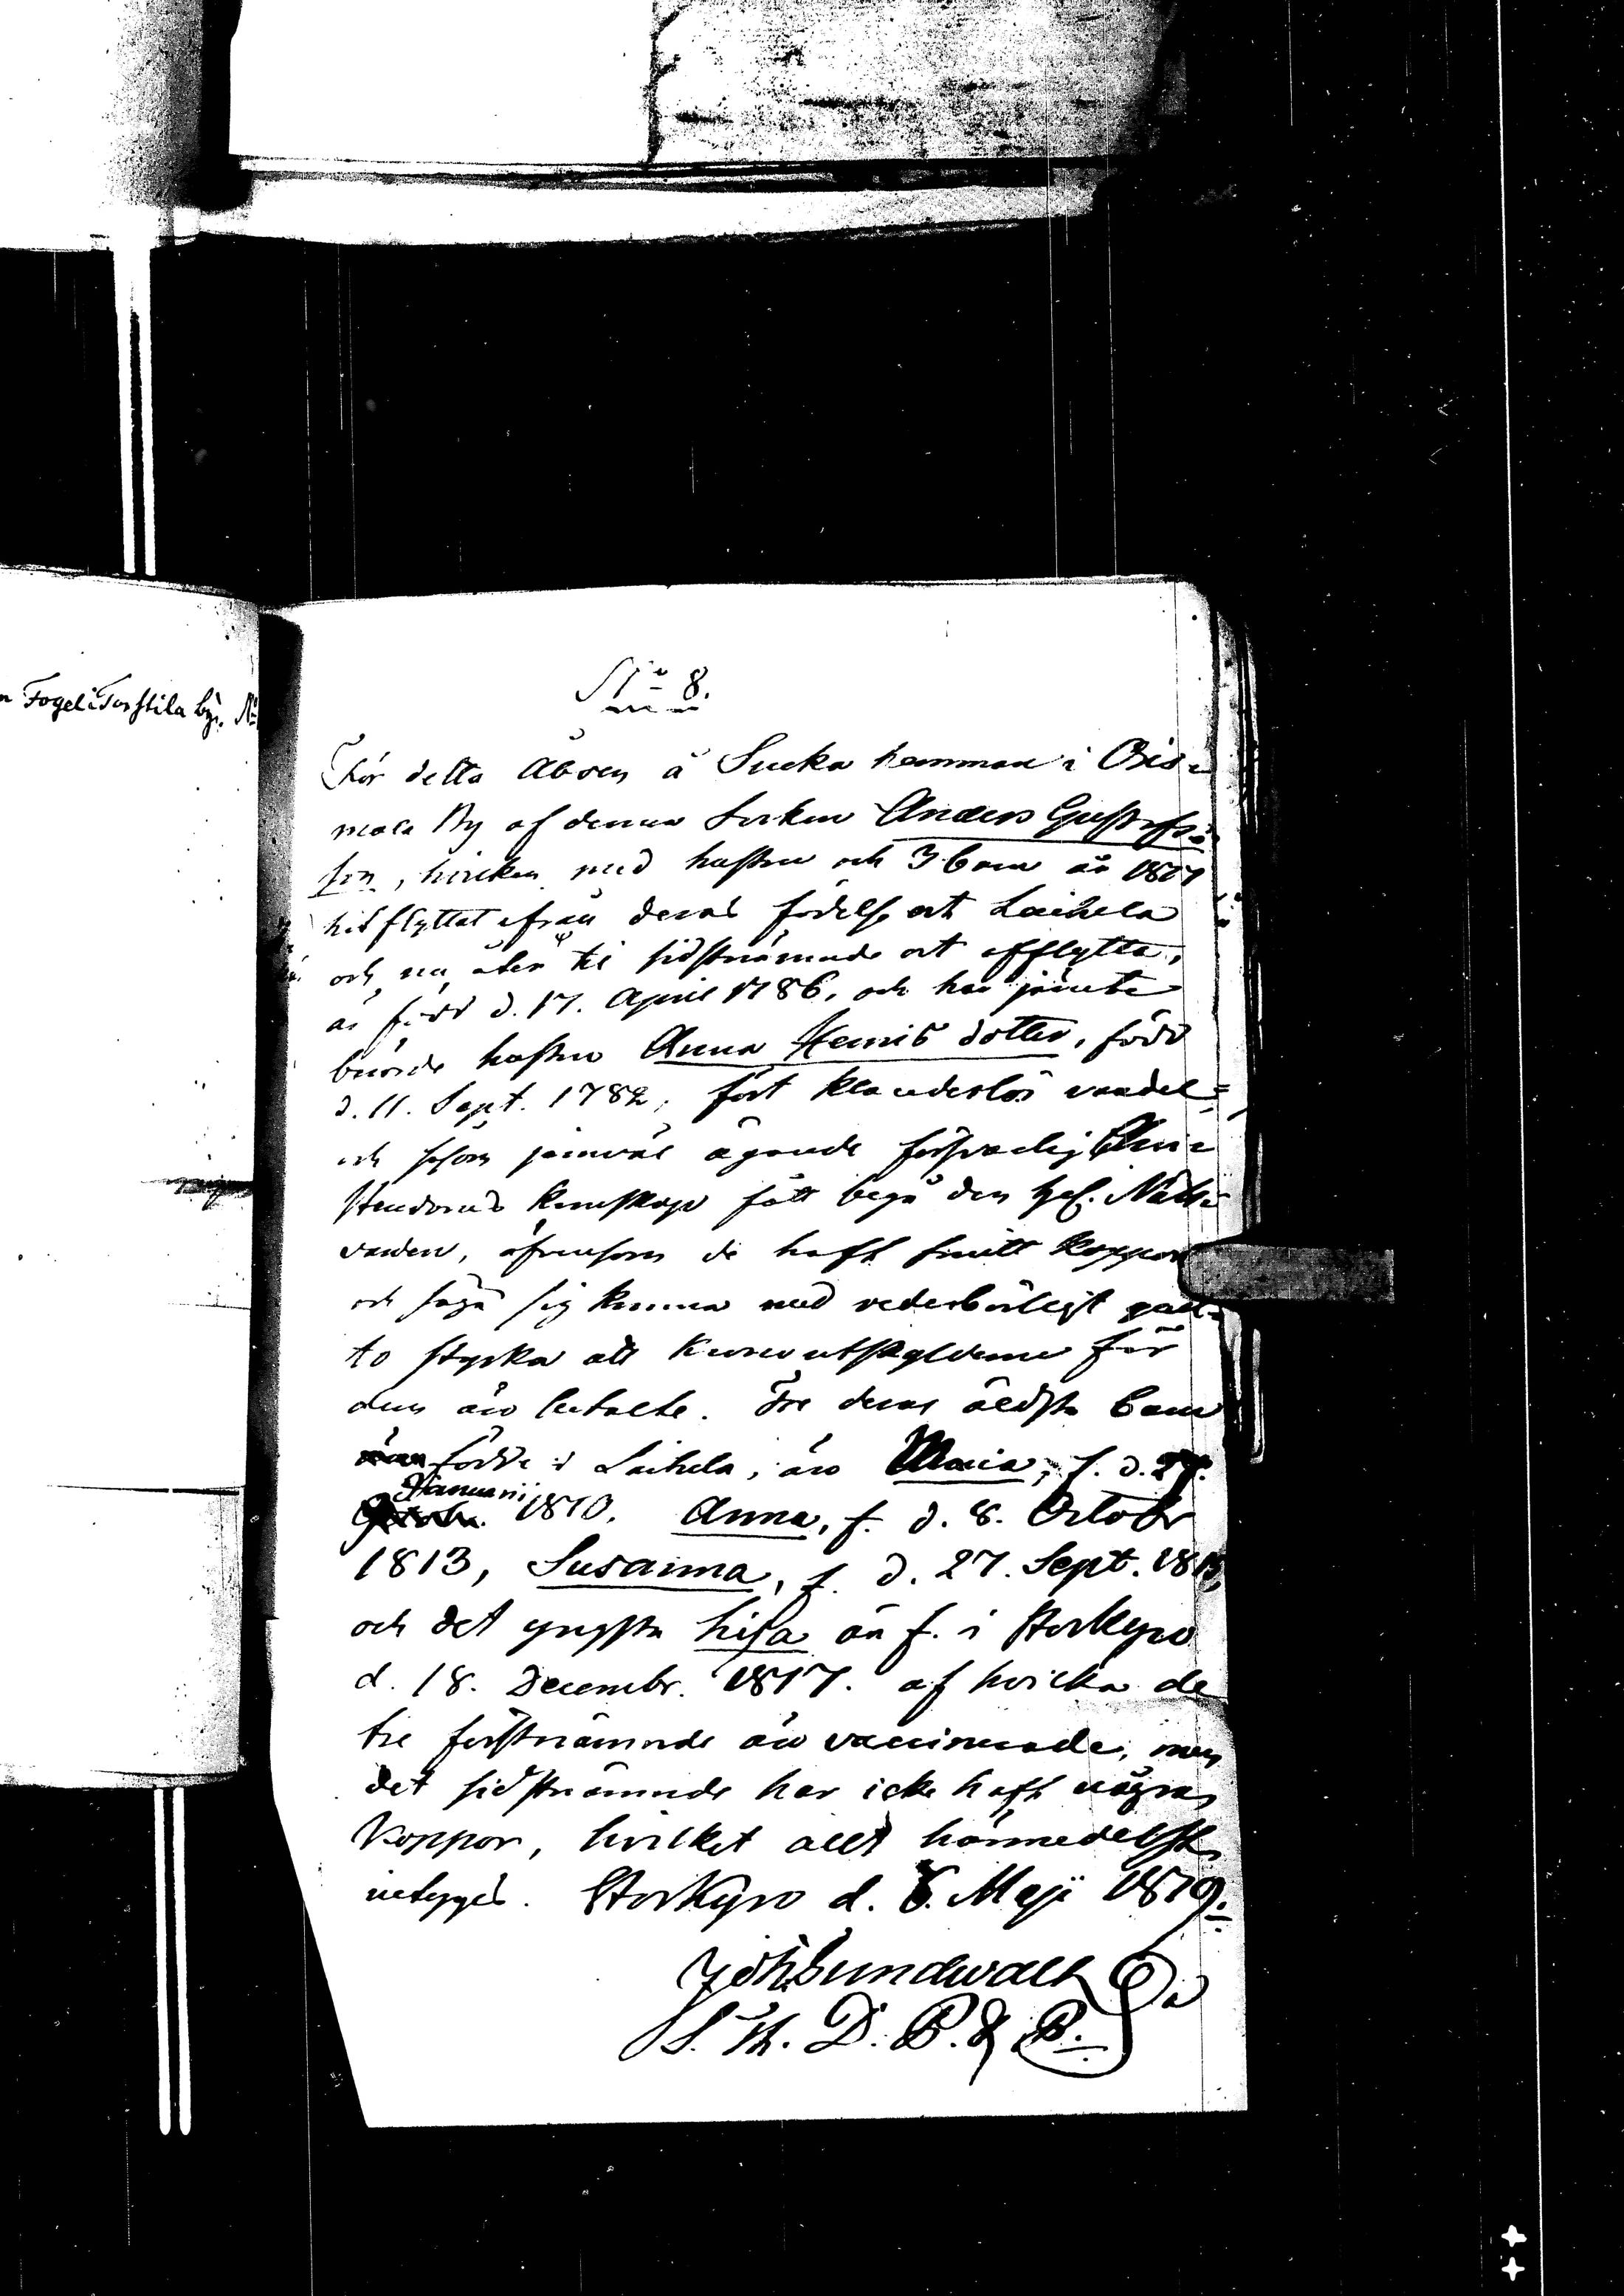 n Fogel i Torstila by. N:
N:o 8.
För detta Åboen å Sucka hemman i Oris-
mala By af denna Socken Anders Gustafs-
son, hvilken med hustru och 3 barn år 1817
hitflyttat ifrån deras födelse ort Laihela
och nu åter til sidstnämnde ort afflytta,
är född d. 17. April 1786, och har jämte
hustru Anna Henrics dotter, född
d. 11. Sept. 1782, fört klanderlös vandel,
och såsom jämväl ägande försvarlig Chri-
stendoms kunskap fått begå den hel. Natt-
varden, äfvensom de haft smitt koppor
och säga sig kunna med vederbörligt qvit-
to styrka att Kronoutskylderne för
dem äro betalte. Tre deras äldsta barn
födde i Laihela, äro Maria, f. d. 27.
Januarii 1810. Anna, f. d. 8. Octobr
1813, Susanna, f. d. 27. Sept. 1815,
och det yngsta Lisa är f. i Storkyro
d. 18. Decembr. 1817. af hvilka de
tre förstnämnde äro vaccinerade, men
det sidstnämnde har icke haft några
koppor, hvilket allt härmedelst
intygas. Storkyro d. 6. Maji 1819.
Joh. Sundwall
S. Th. D. P. & P.